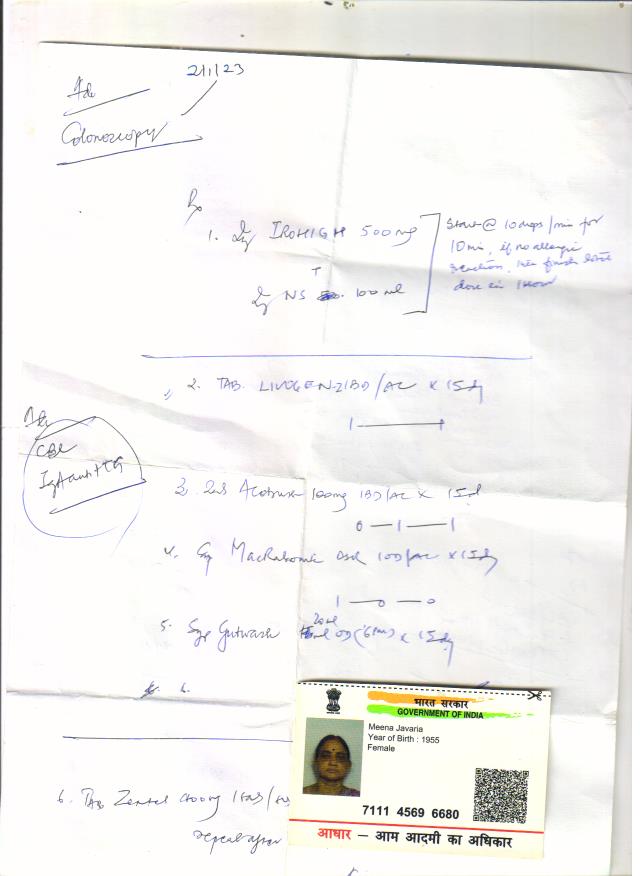 2/1/23
Adv
Colonoscopy
Rx
1. Inj IROHIGH 500mg
Inj NS 100 ml
Start @ 10 drops/min for
10 min, if no allergic
reaction, then finish total
dose in 1 hour
2. TAB. LIVOGEN-Z 1BD/AC x 15d
1 — 1
Adv
CBC
IgA anti tTG
3. 100mg 1BD/AC x 15d
0 — 1 — 1
4. DSR 1OD/AC x 15d
1 — 0 — 0
5. Syp Gutwash 20ml OD (6pm) x 15d
6.
6. TAB Zentel 400mg 1
repeat after
भारत सरकार
GOVERNMENT OF INDIA
Meena Javaria
Year of Birth : 1955
Female
7111 4569 6680
आधार – आम आदमी का अधिकार